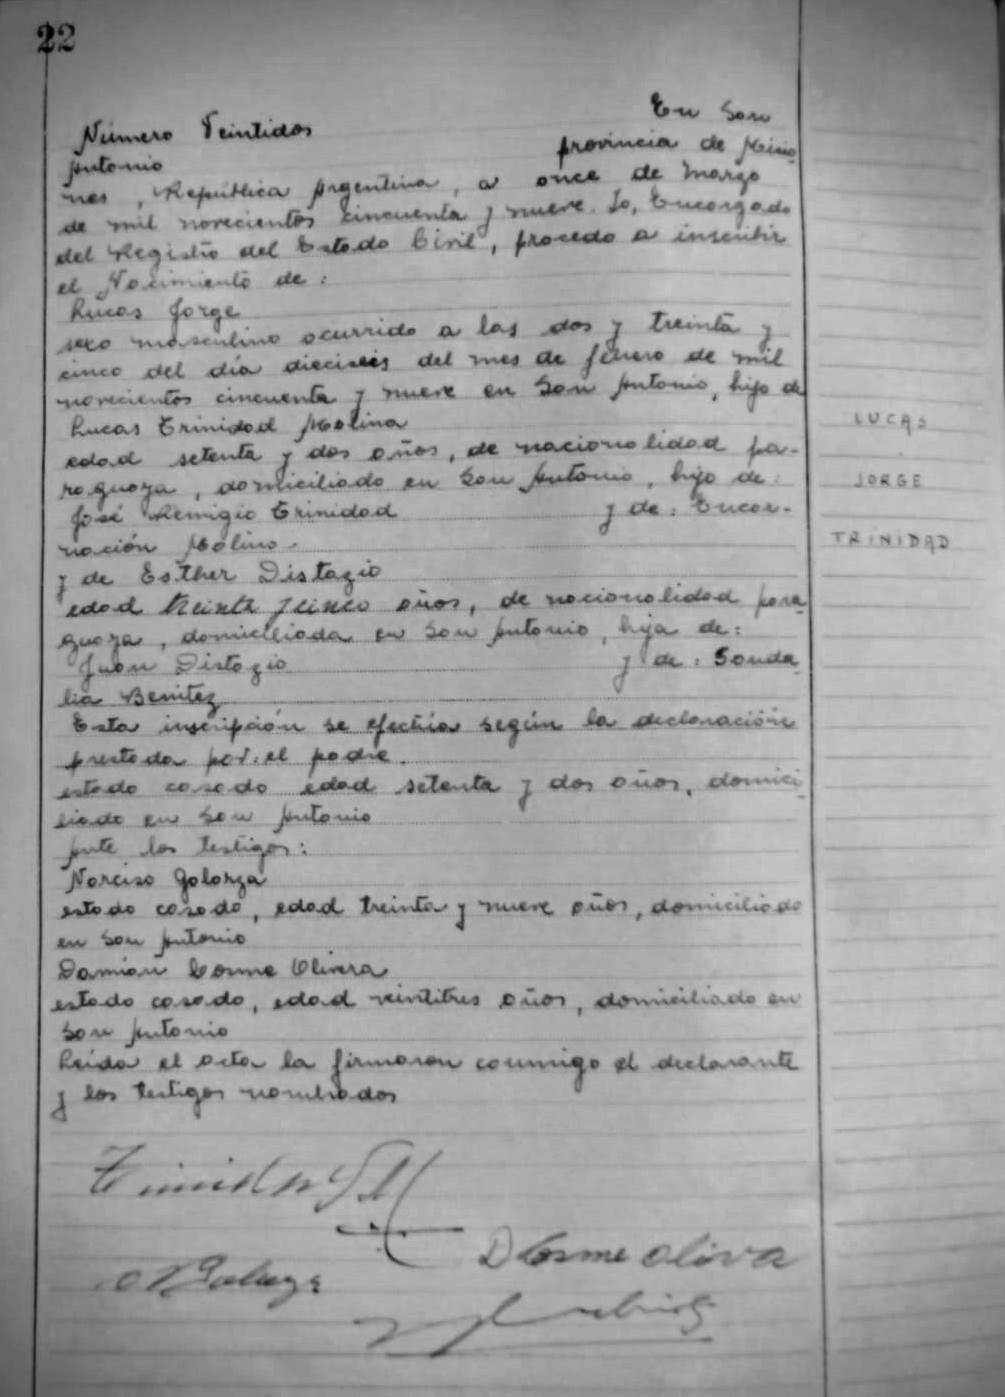 22
Número Veintidos En San
Antonio provincia de Misio-
nes, República Argentina, a once de Marzo
de mil novecientos cincuenta y nueve. Yo, Encargado
del Registro del Estado Civil, procedo a inscribir
el Nacimiento de:
Lucas Jorge
sexo masculino ocurrido a las dos y treinta y
cinco del día dieciseis del mes de febrero de mil
novecientos cincuenta y nueve en San Antonio, hijo de
Lucas Trinidad Molina
edad setenta y dos años, de nacionalidad pa-
raguaya, domiciliado en San Antonio, hijo de:
José Remigio Trinidad y de: Encar-
nación Molina.
y de Esther Distazio
edad treinta y cinco años, de nacionalidad para
guaya, domiciliada en San Antonio, hija de:
Juan Distazio y de: Sanda-
lia Benitez
Esta inscripción se efectúa según la declaración
prestada por: el padre.
estado casado edad setenta y dos años, domici-
liado en San Antonio
Ante los testigos:
Narciso Galarza
estado casado, edad treinta y nueve años, domiciliado
en San Antonio
Damián Cosme Olivera
estado casado, edad veintitres años, domiciliado en
San Antonio
Leída el acta la firmaron conmigo el declarante
y los testigos nombrados
D Cosme Oliva
LUCAS
JORGE
TRINIDAD